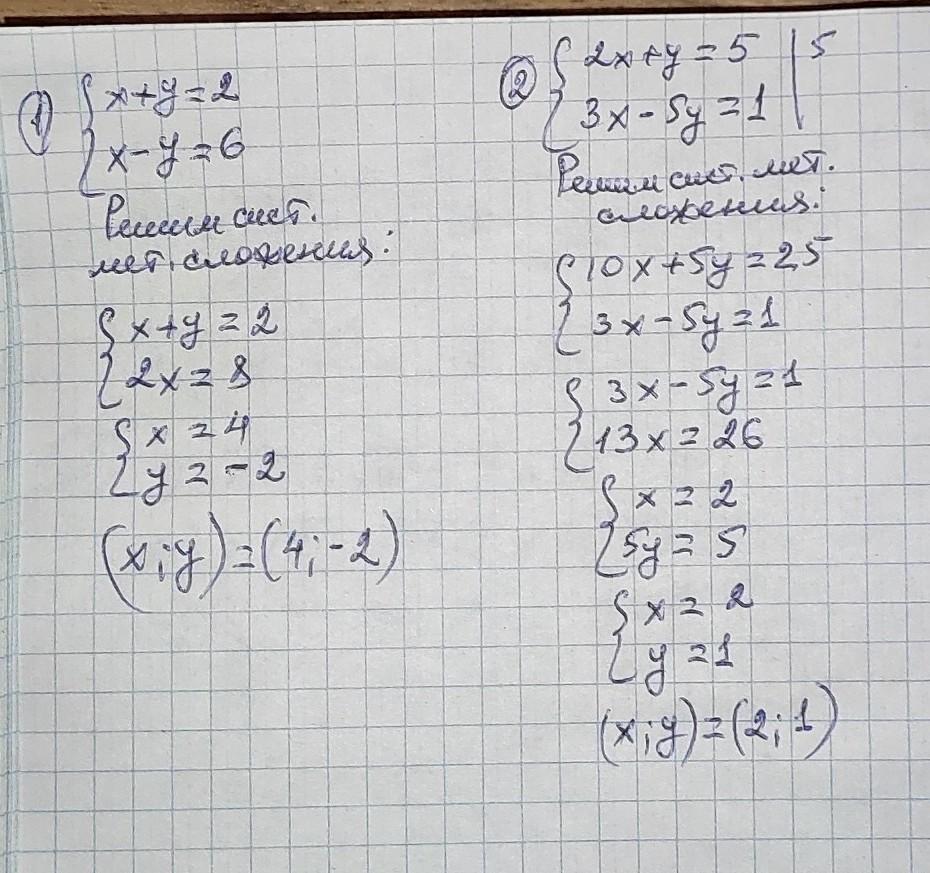 ① { x+y=2
x-y=6
Решим сист.
мет. сложения:
{ x+y=2
2x=8
{ x=4
y=-2
(x;y)=(4;-2)
② { 2x+y=5 | 5
3x-5y=1 |
Решим сист. мет.
сложения:
{ 10x+5y=25
3x-5y=1
{ 3x-5y=1
13x=26
{ x=2
5y=5
{ x=2
y=1
(x;y)=(2;1)